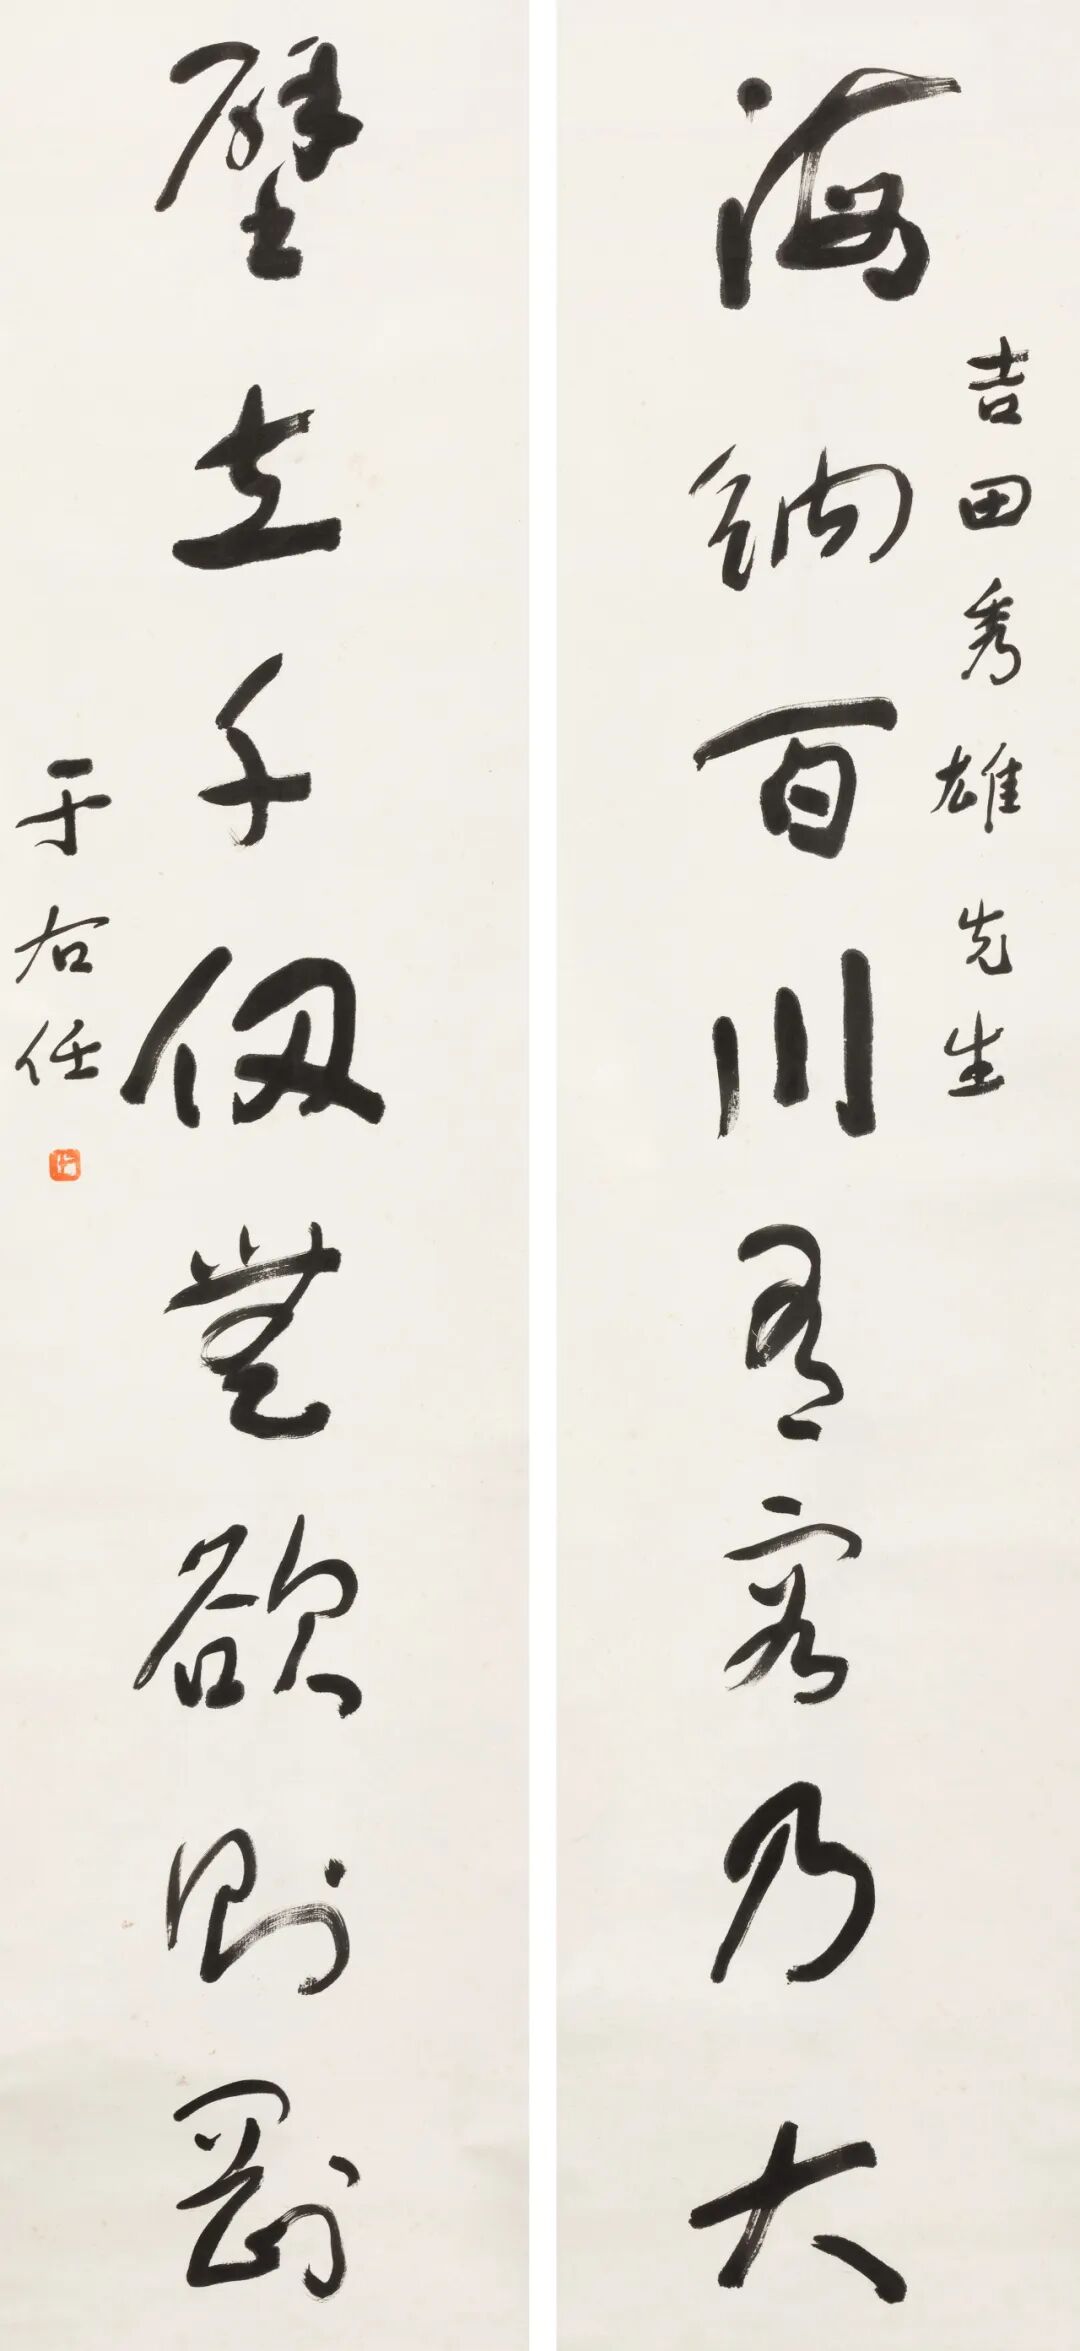 海納百川有容乃大
吉田秀雄先生
壁立千仞無欲則剛
于右任